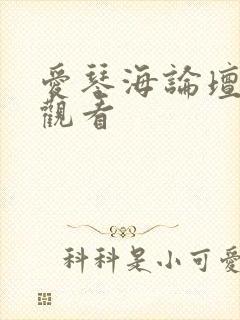 愛琴海論壇
觀看
科科是小可愛